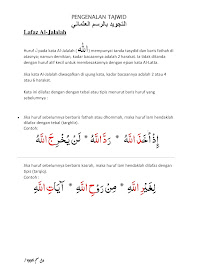 PENGENALAN TAJWID
التجويد بالرسم العثماني
Lafaz Al-Jalalah
Huruf ل pada kata Al-Jalalah ( اللّٰه ) mempunyai tanda tasydid dan baris fathah di
atasnya, namun demikian, kadar bacaannya adalah 2 harakat. Ia tidak ditanda
dengan huruf alif kecil untuk membezakannya dengan ejaan kata Al-Latta.
Jika kata Al-Jalalah diwaqafkan di ujung kata, kadar bacaannya adalah 2 atau 4
atau 6 harakat.
Kata ini dilafaz dengan dengan tebal atau tipis menurut baris huruf yang
sebelumnya :
Jika huruf sebelumnya berbaris fathah atau dhommah, maka huruf lam hendaklah
dilafaz dengan tebal (taghliz).
Contoh:
إِذْ أَخَذَ اللَّهُ * رَدَّ اللَّهُ * لَنْ يُخْرِجَ اللَّهُ
Jika huruf sebelumnya berbaris kasrah, maka huruf lam hendaklah dilafaz dengan
tipis (tarqiq).
Contoh :
لِغَيْرِ اللَّهِ * مِنْ رَوْحِ اللَّهِ * آيَاتِ اللَّهِ